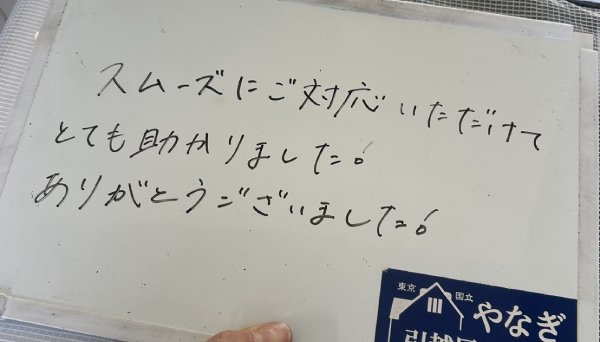 スムーズにご対応いただけて
とても助かりました!
ありがとうございました!
東京 国立
やなぎ
引越